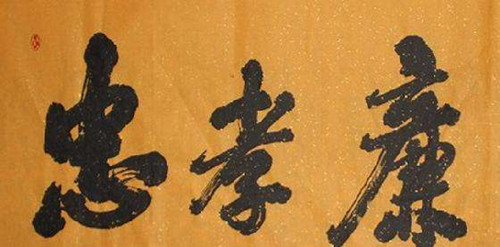 忠孝廉